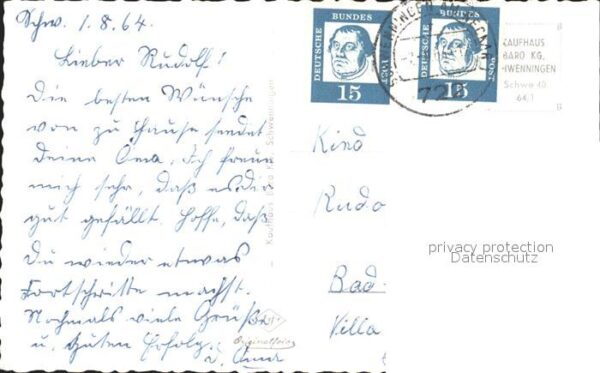 Schw. 1.8.64.
Lieber Rudolf!
Die besten Wünsche
von zu Hause sendet
deine Oma. Ich freue
mich sehr, daß es dir
gut gefällt. Hoffe, daß
Du wieder etwas
Fortschritte machst.
Nochmals viele Grüße
u. guten Erfolg.
d. Oma
Kaufhaus Baro KG. Schwenningen
Originalfoto
DEUTSCHE
BUNDES
POST
15
DEUTSCHE
BUNDES
POST
15
SCHWENNINGEN AM NECKAR
KAUFHAUS
BARO KG.
SCHWENNINGEN
Schwe 40
64/1
Kind
Rudo
Bad
Villa
privacy protection
Datenschutz